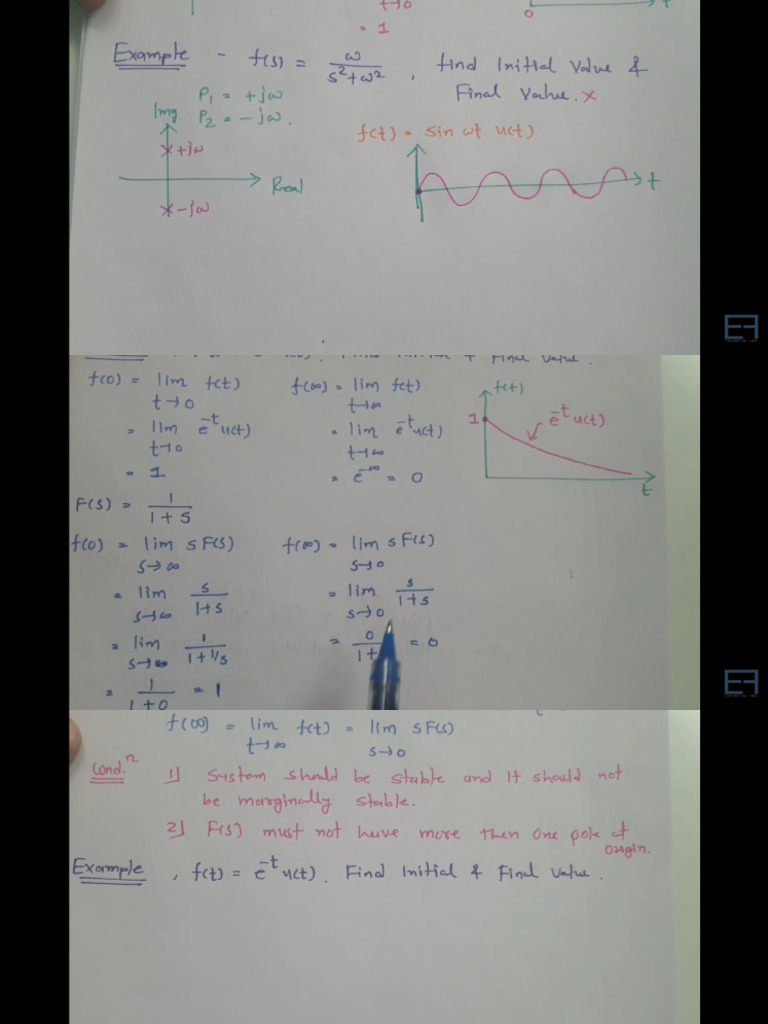 t→0
= 1
0
t
Example - f(s) = ω / s²+ω² , find Initial Value &
Final Value. ×
P₁ = +jω
P₂ = -jω.
Img
×+jω
Real
×-jω
f(t) = sin ωt u(t)
t
EF
Final Value.
f(0) = lim t→0 f(t)
= lim t→0 e^-t u(t)
= 1
f(∞) = lim t→∞ f(t)
= lim t→∞ e^-t u(t)
= e^-∞ = 0
f(t)
1
e^-t u(t)
t
F(s) = 1 / 1+s
f(0) = lim s→∞ s F(s)
= lim s→∞ s / 1+s
= lim s→∞ 1 / 1+1/s
= 1 / 1+0 = 1
f(∞) = lim s→0 s F(s)
= lim s→0 s / 1+s
= 0 / 1+ = 0
EF
f(∞) = lim t→∞ f(t) = lim s→0 s F(s)
Cond.ⁿ 1] System should be stable and it should not
be marginally stable.
2] F(s) must not have more then one pole at
origin.
Example , f(t) = e^-t u(t). Find Initial & Final Value.